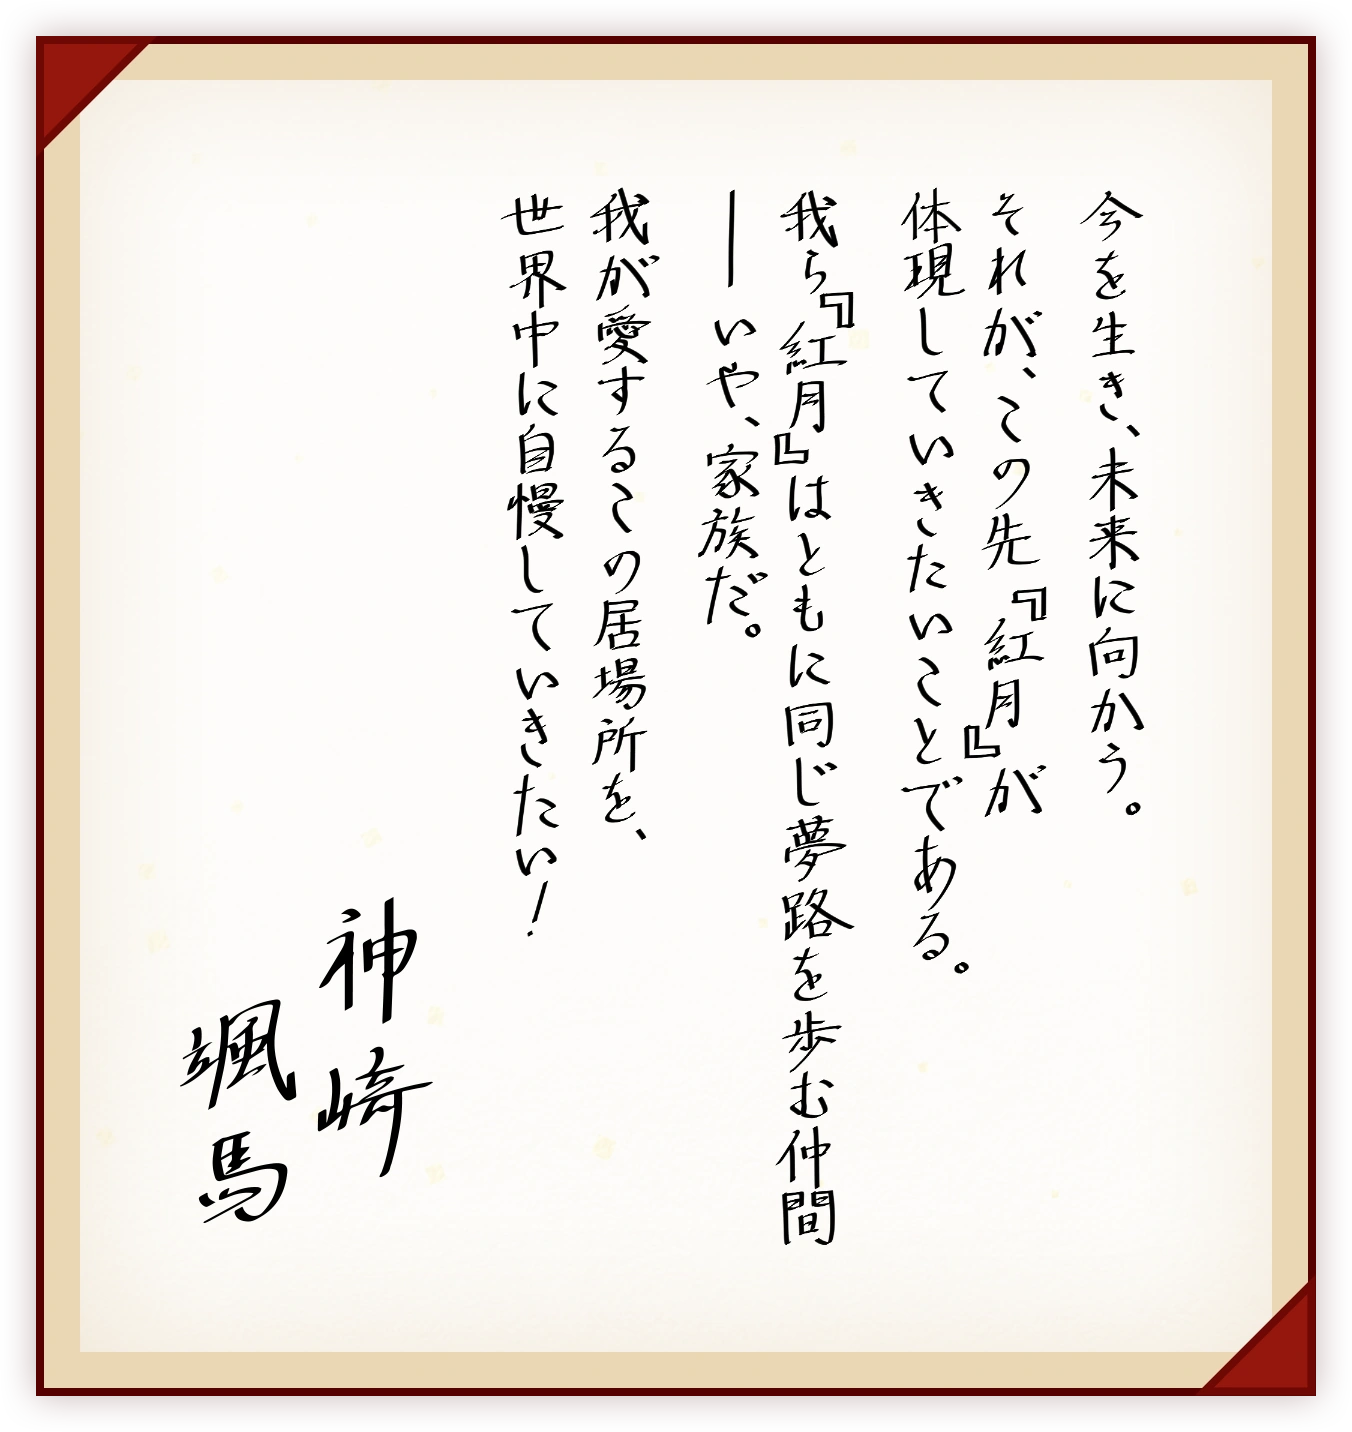 今を生き、未来に向かう。
それが、この先『紅月』が
体現していきたいことである。
我ら『紅月』はともに同じ夢路を歩む仲間
──いや、家族だ。
我が愛するこの居場所を、
世界中に自慢していきたい！
神崎
颯馬